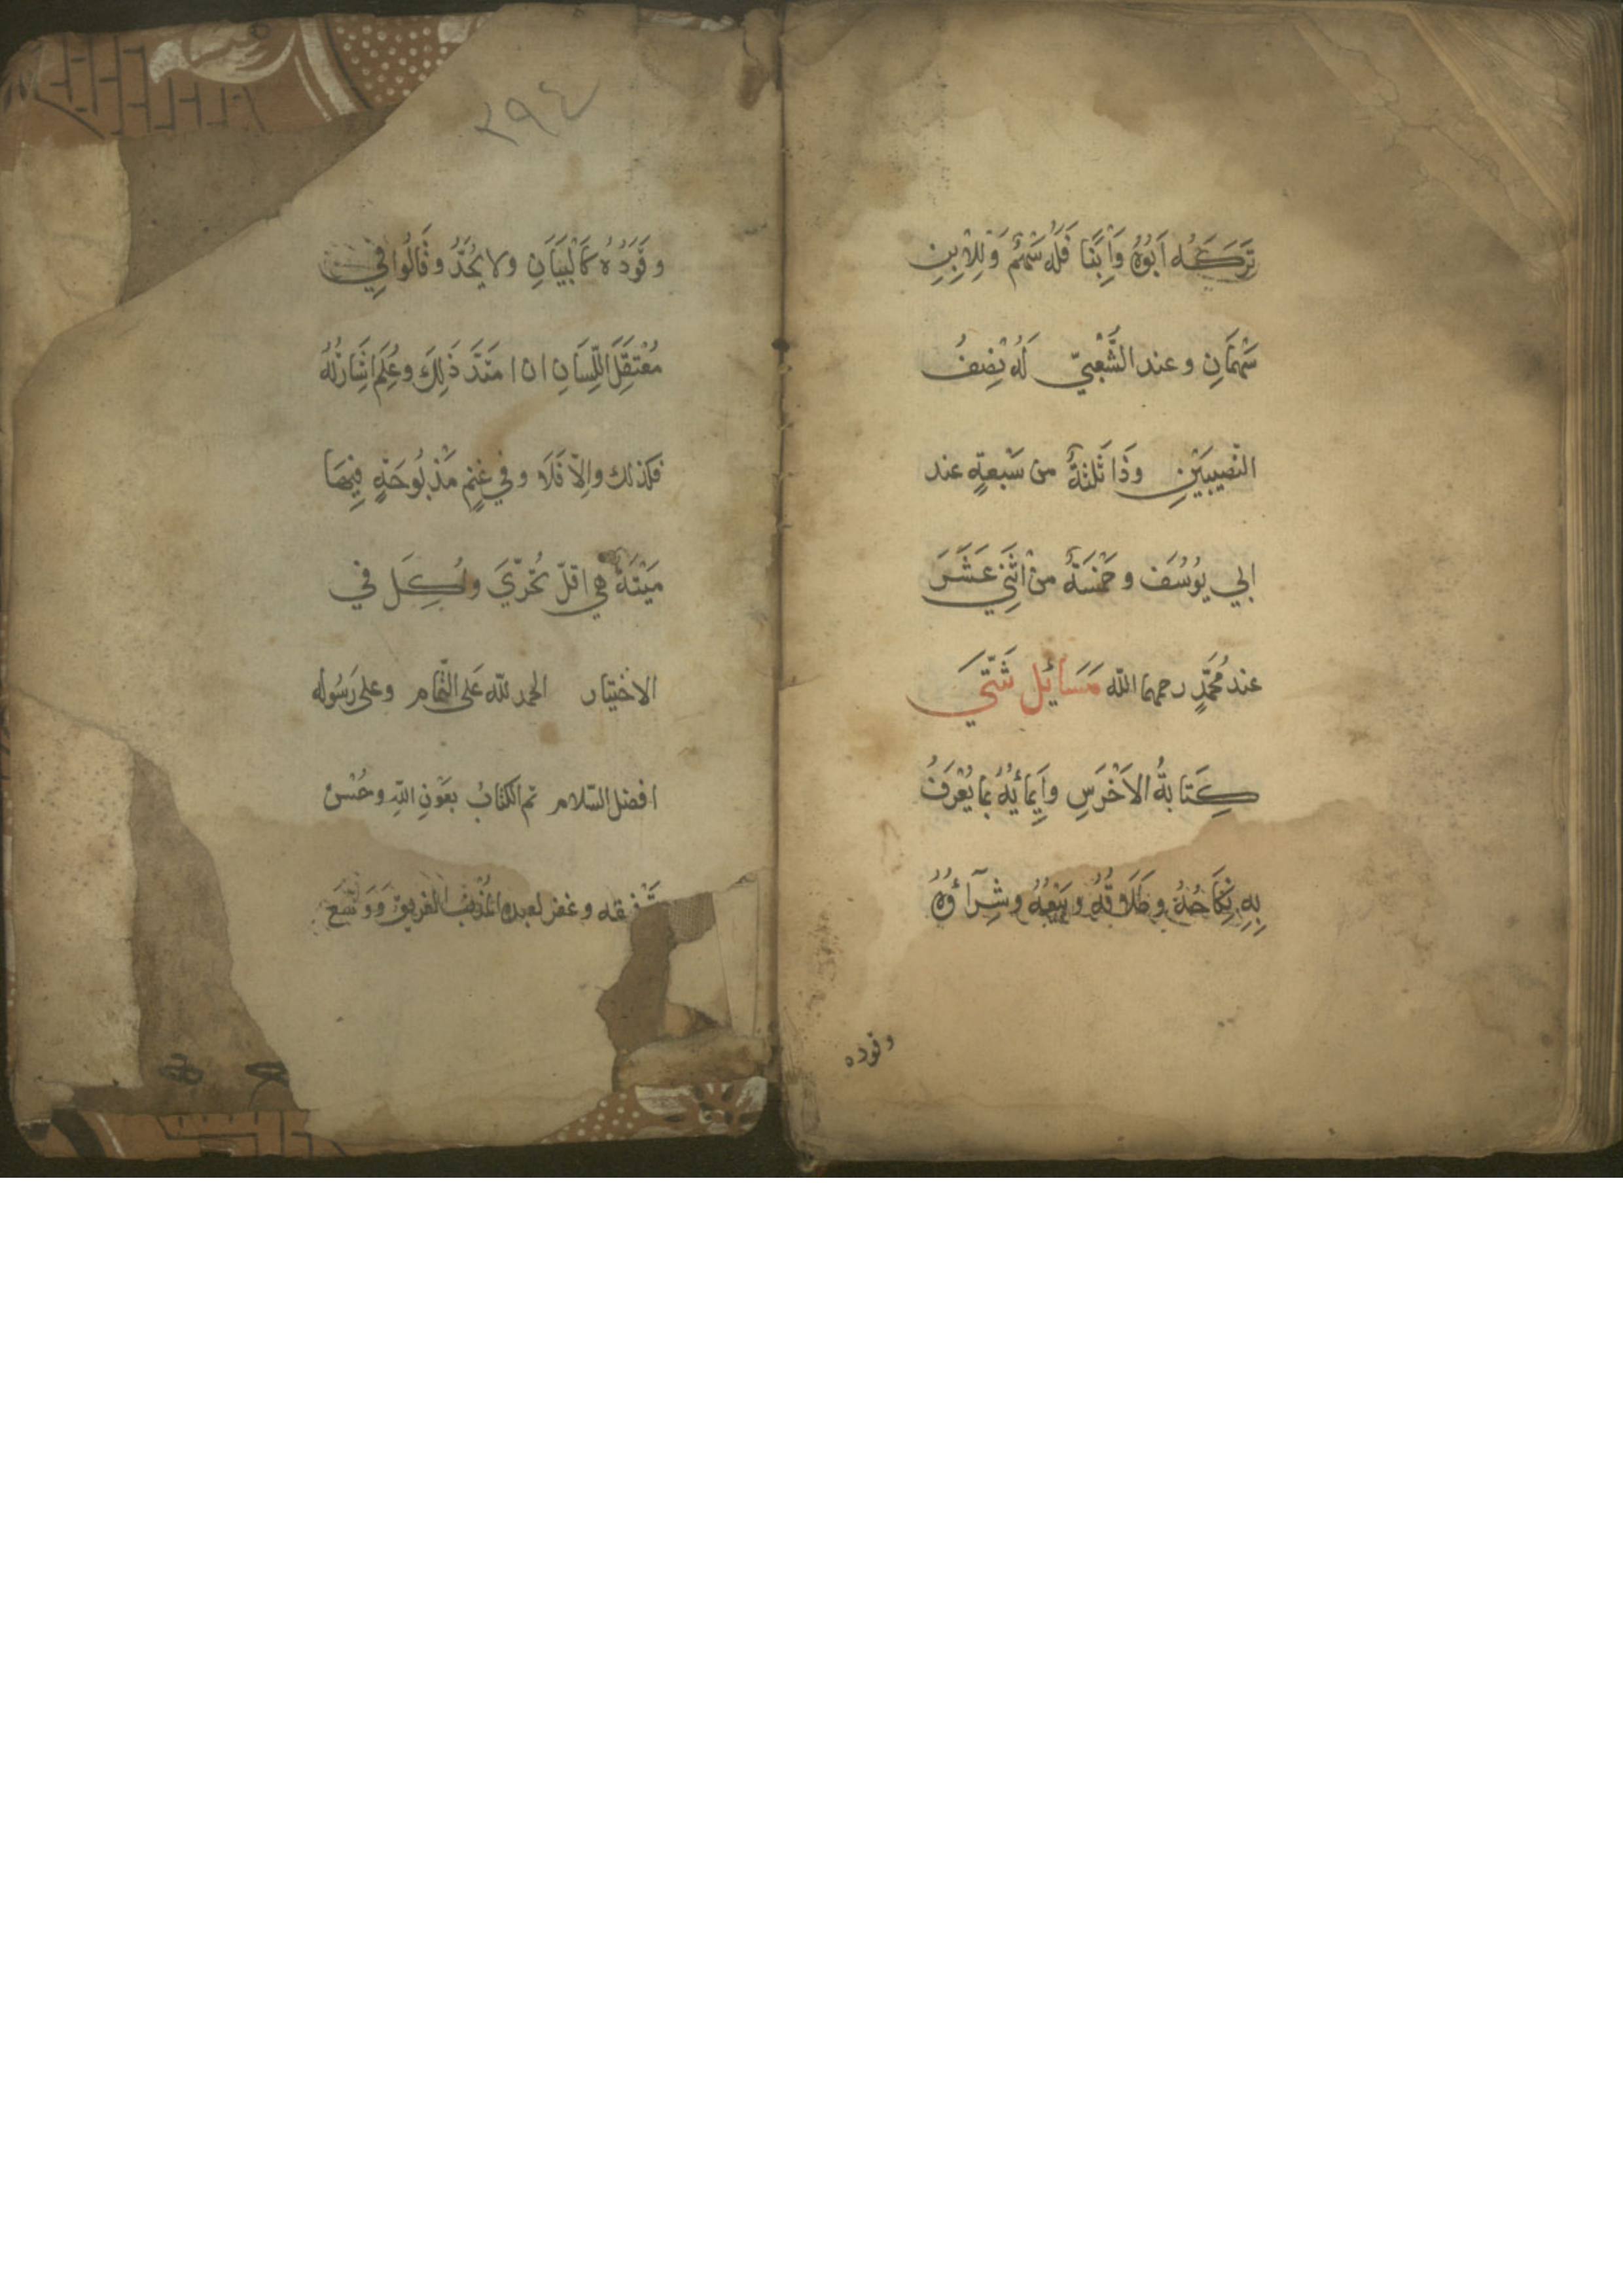 تَرَكَهُ اَبُوهُ وَاِبْنًا فَلَهُ سَهْمٌ وَلِلْاِبْنِ
سَهْمَانِ وعند الشَّعْبِيّ لَهُ نِصْفُ
النّصِيبَيْنِ وَذَا ثَلٰثَةٌ من سَبْعةٍ عند
ابي يُوسُفَ وخَمْسَةٌ منْ اثْنَيْ عَشَرَ
عند مُحَمَّدٍ رحمهما اللّه مَسَائِل شَتّٰي
كِتَابةُ الاَخْرَسِ وَاِيمَائُهُ بمَا يُعْرَفُ
بِهِ نِكَاحُهُ وطَلَاقُهُ وبَيْعُهُ وشِرَآؤُهُ
وقوده
٢٩٤
وقَوَدُهُ كَالْبَيَانِ ولا يُحَدُّ وقَالُوا فِي
مُعْتَقَلِ اللِّسَانِ ان امتَدَّ ذَلِكَ وعُلِمَ اشَارَتُهُ
فكذلك واِلاّ فَلَا وفي غَنَمٍ مَذْبُوحَةٍ فِيهَا
مَيْتَةٌ هي اقلّ تَحَرّيَ وأُكِلَ في
الاختيار الحمد للّه عَلى التّمام وعلى رَسُوله
افضل السّلام تم الكتابُ بعَوْنِ اللّهِ وحُسْن
تَوْفيقه وغفر لعبده المُذْنِبْ الغريق وَوَسَّعَ